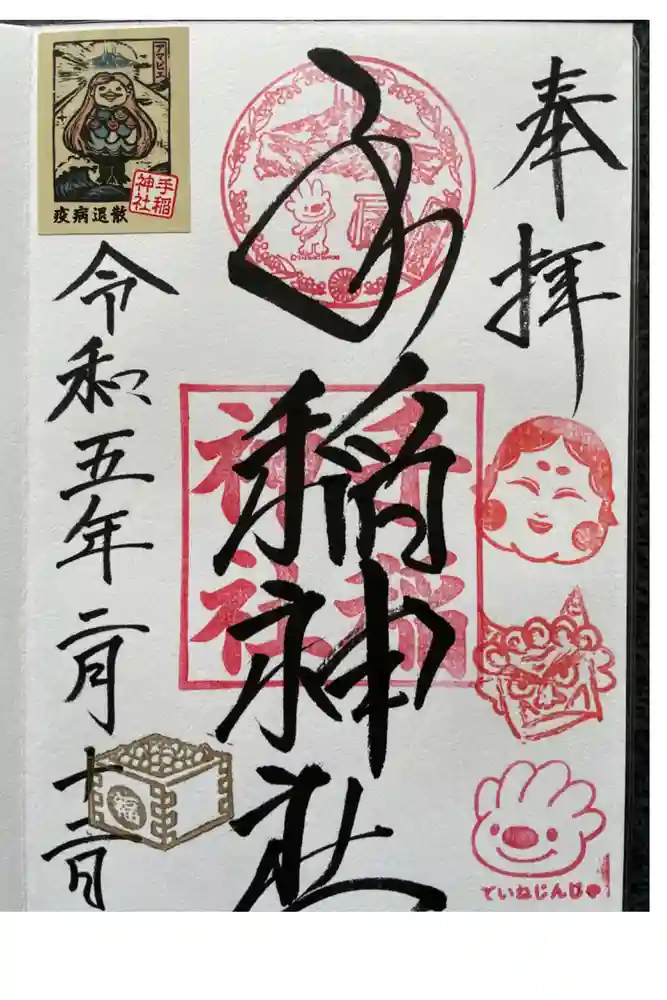 奉拝
手稲神社
手稲神社
令和五年二月十二日
アマビエ
手稲神社
疫病退散
福
ていねじんじゃ